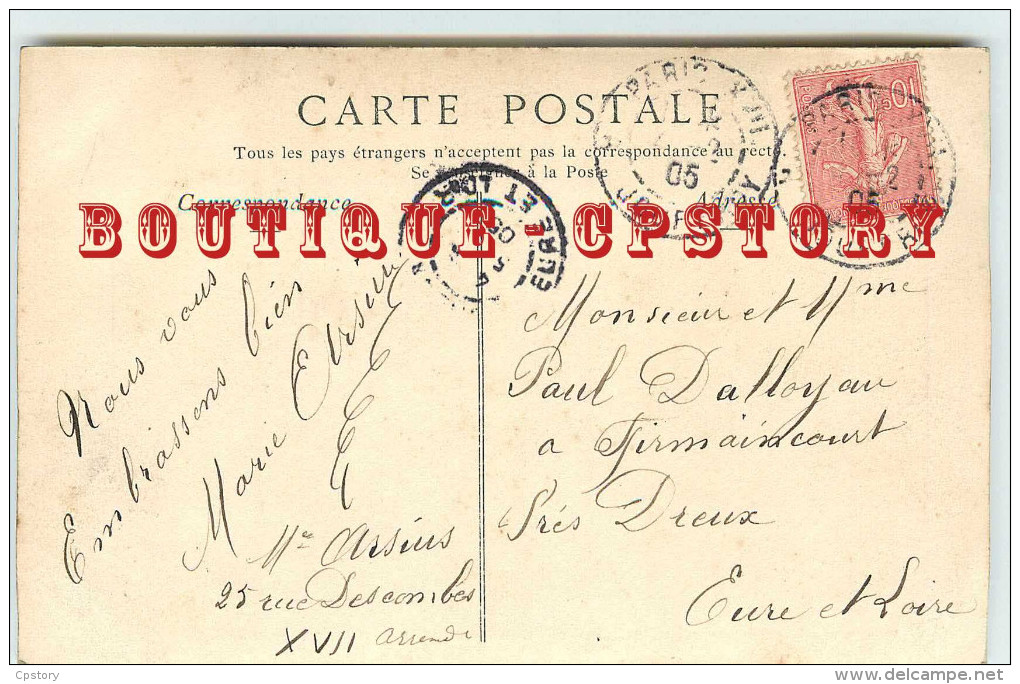 CARTE POSTALE
Tous les pays étrangers n'acceptent pas la correspondance au recto.
Se à la Poste
Correspondance
Adresse
BOUTIQUE - CPSTORY
PARIS XVII
05
EURE ET LOIR
5 05
10
Nous vous
Embrassons bien
Marie
Mr Arsius
25 rue Descombes
XVII
Monsieur et Mme
Paul Dalloyau
a Firmaincourt
Près Dreux
Eure et Loire
Cpstory
delcampe.net